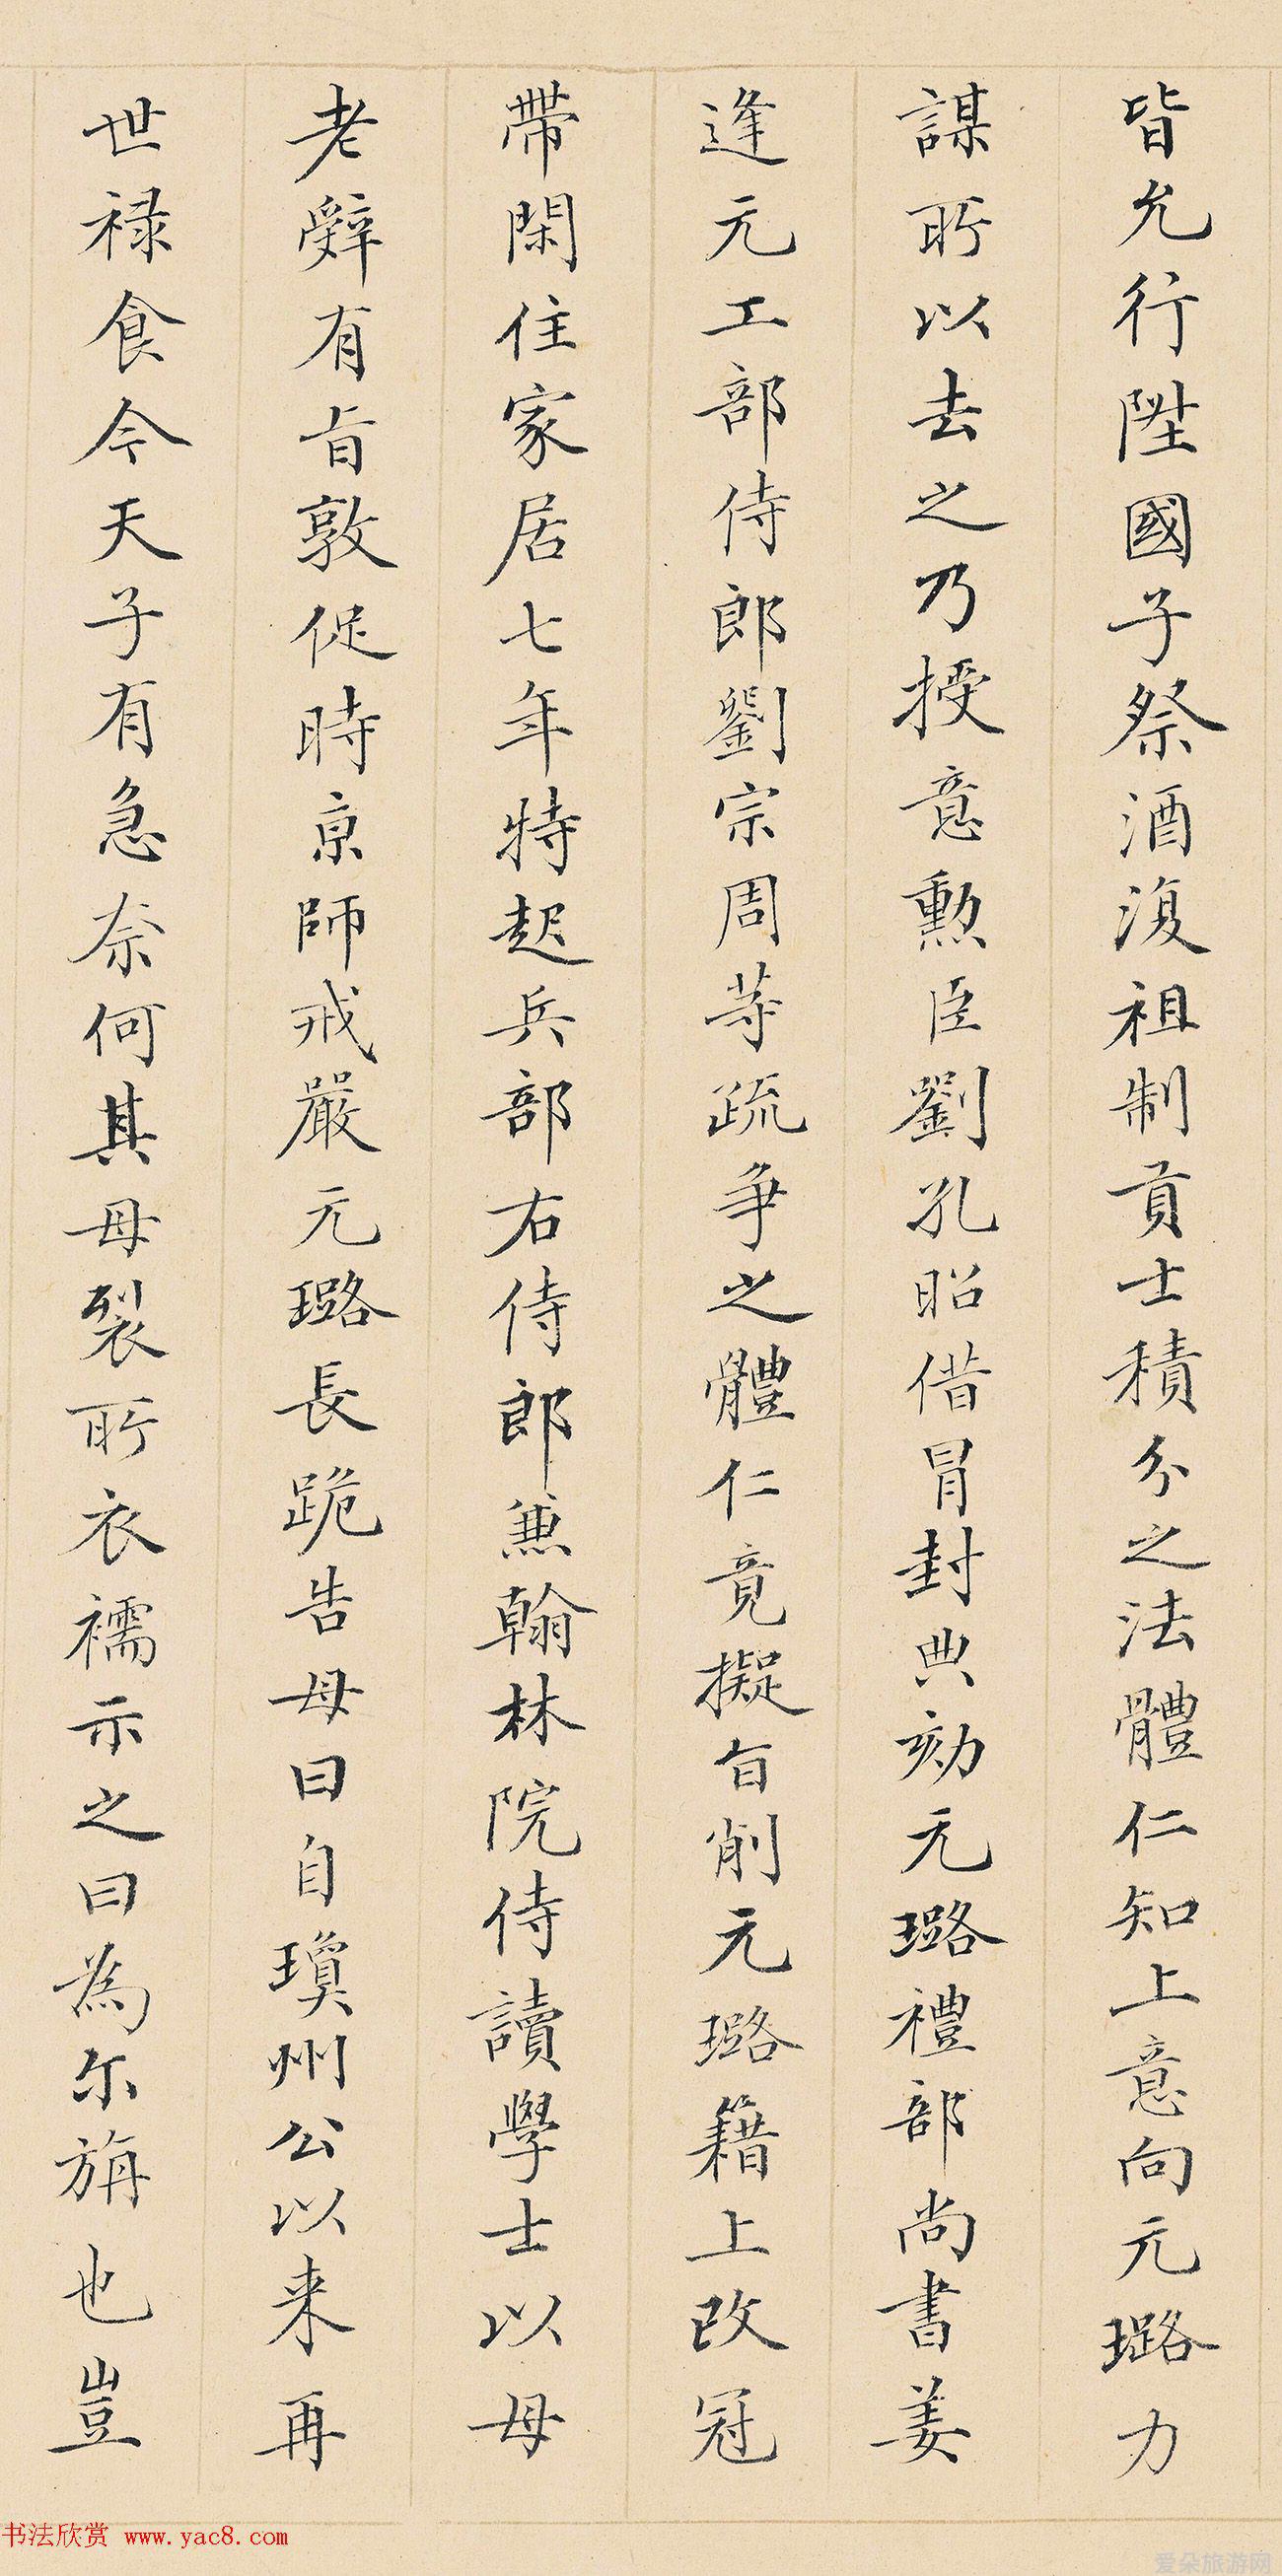 皆允行陞國子祭酒復祖制貢士積分之法體仁知上意向元璐力
謀所以去之乃授意勲臣劉孔昭借冒封典劾元璐禮部尚書姜
逢元工部侍郎劉宗周等疏爭之體仁竟擬旨削元璐籍上改冠
帶閑住家居七年特起兵部右侍郎兼翰林院侍讀學士以母
老辭有旨敦促時京師戒嚴元璐長跪告母曰自瓊州公以来再
世禄食今天子有急奈何其母裂所衣襦示之曰為尔旃也豈
书法欣赏 www.yac8.com
爱朵旅游网